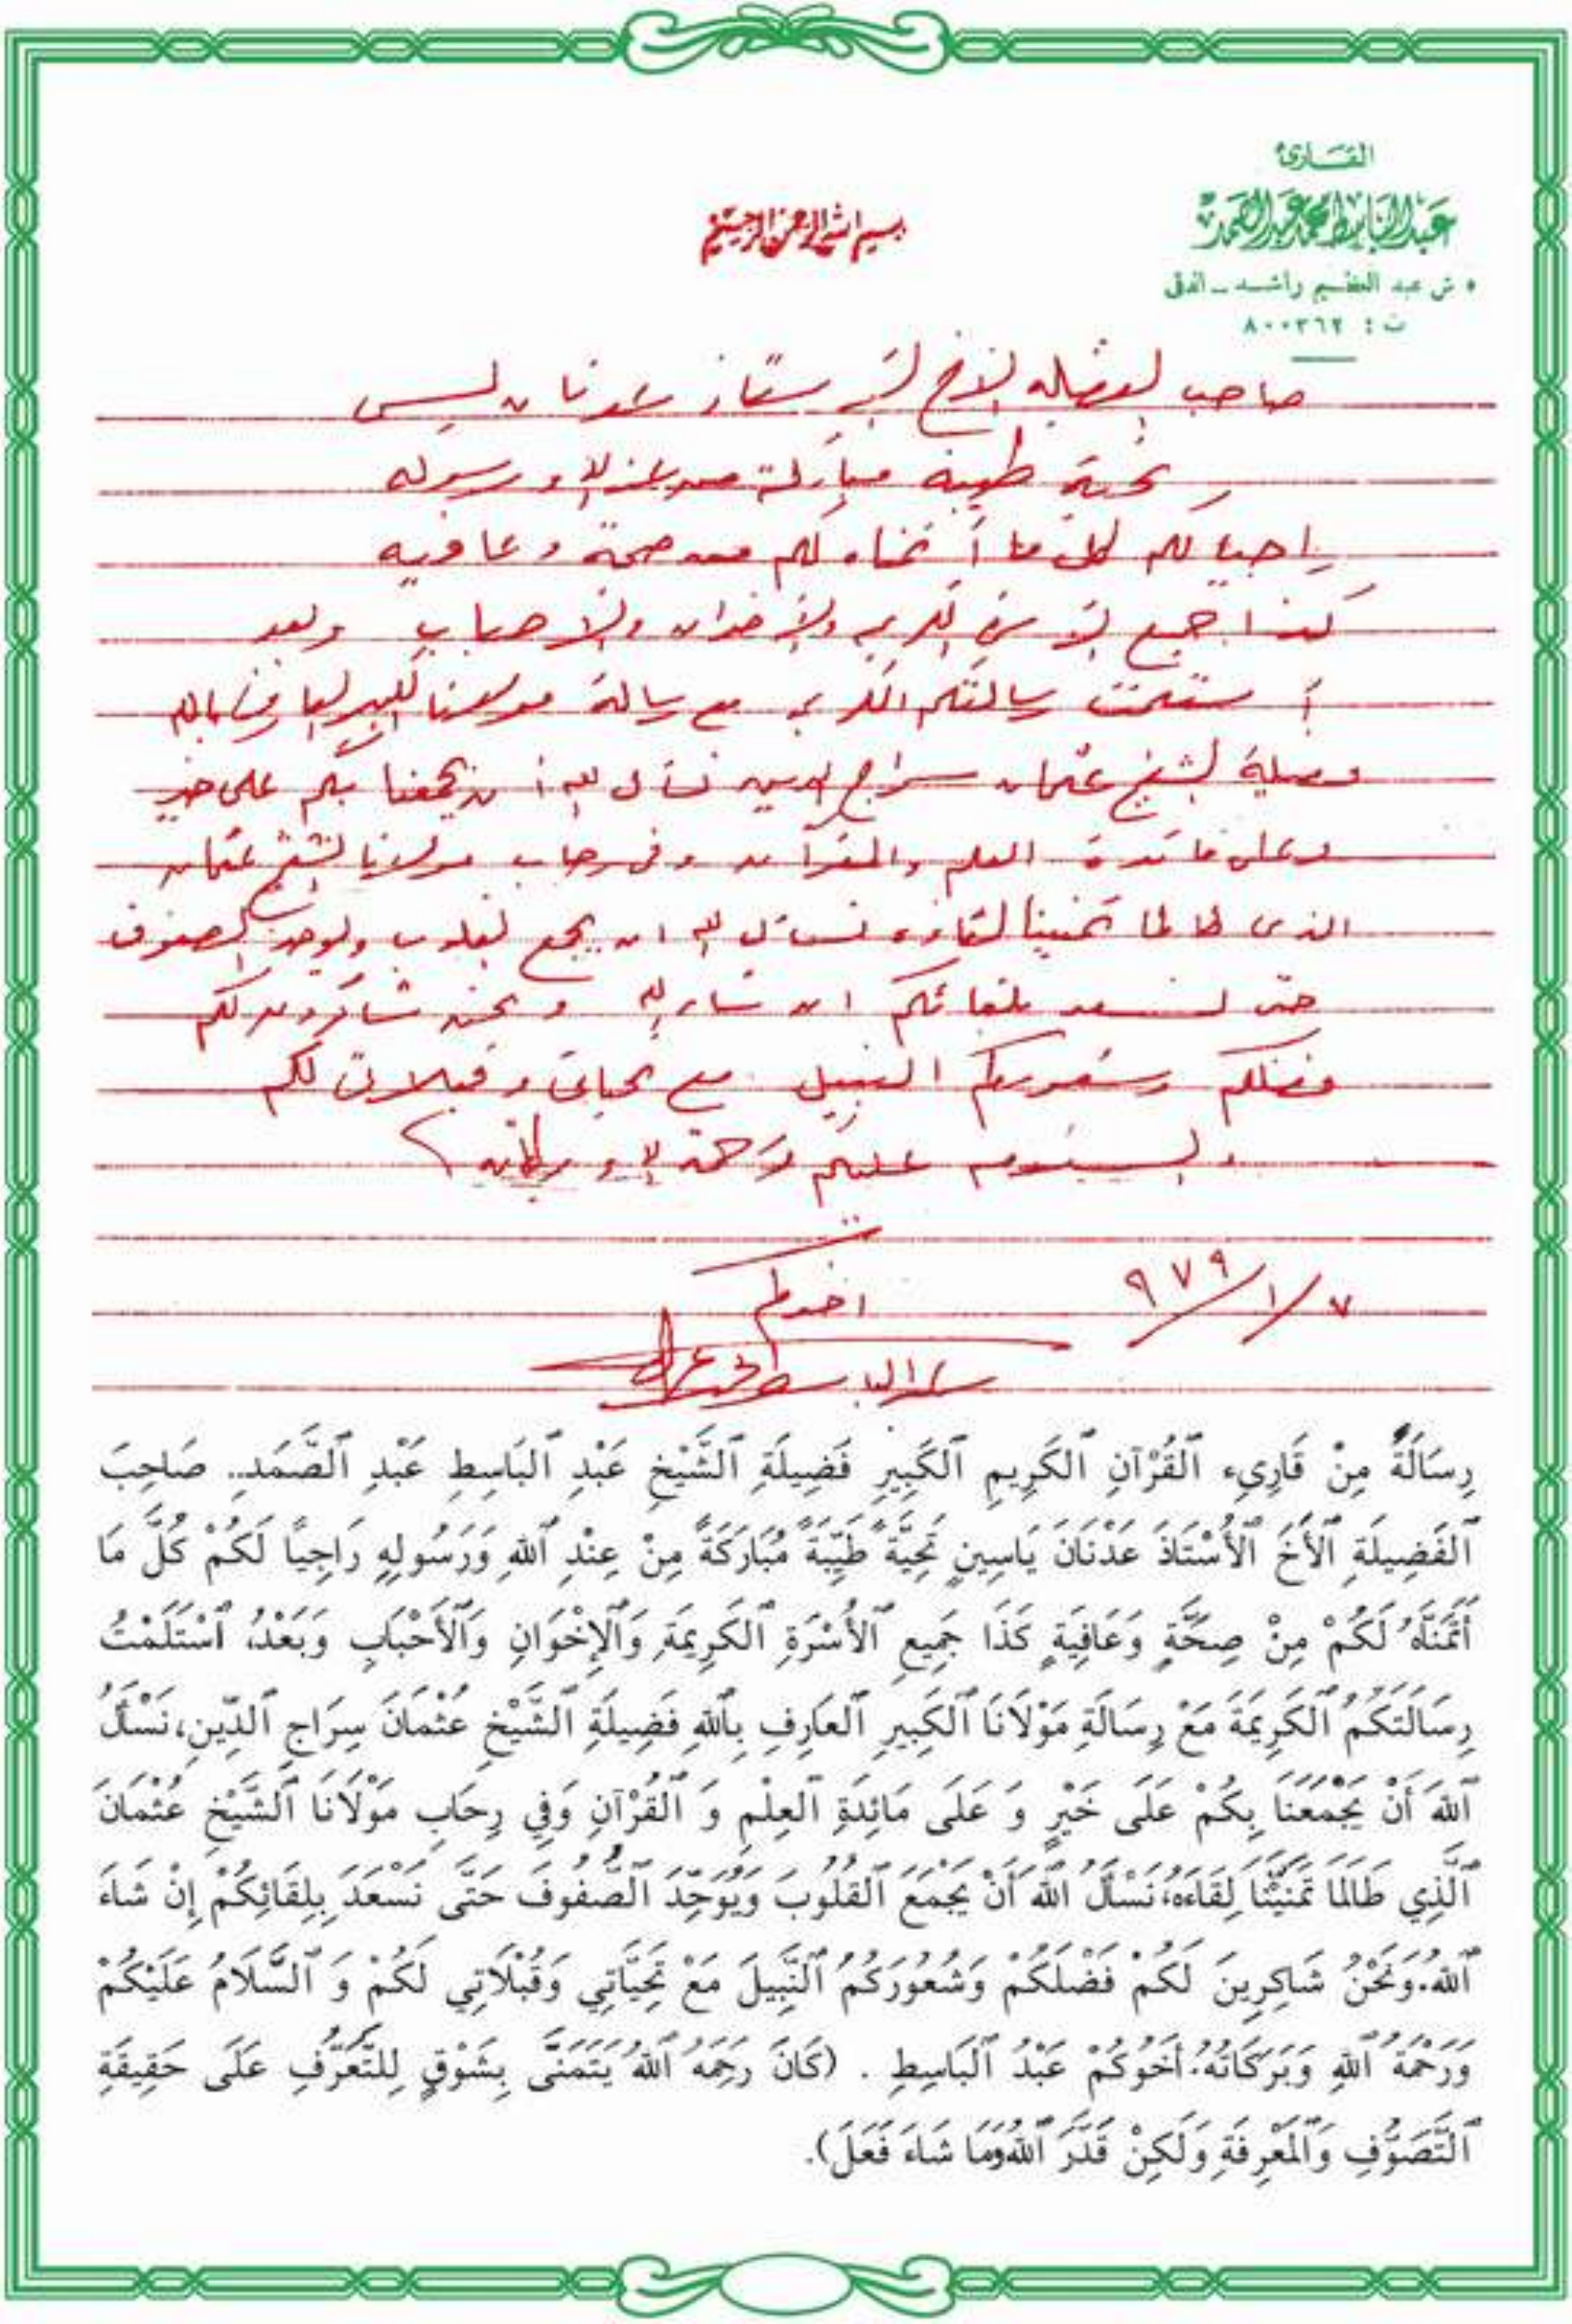 القارئ
عبد الباسط محمد عبد الصمد
٥ ش عبد العظيم راشد - الدقى
ت : ٨٠٠٣٦٢
بسم الله الرحمن الرحيم
صاحب الفضيله الأخ الأستاذ عدنان يسن
تحية طيبه مباركة من عند الله ورسوله
راجيا لكم كل ما أتمناه لكم من صحة وعافيه
كذا جميع الأسرة الكريمه والأخوان والأحباب وبعد
أستلمت رسالتكم الكريمه مع رسالة مولانا الكبير العارف بالله
فضيلة الشيخ عثمان سراج الدين نسأل الله أن يجمعنا بكم على خير
وعلى مائدة العلم والقرآن وفى رحاب مولانا الشيخ عثمان
الذى طالما تمنينا لقاؤه نسأل الله ان يجمع القلوب ويوحد الصفوف
حتى نسعد بلقائكم ان شاء الله ونحن شاكرون لكم
فضلكم وشعوركم النبيل مع تحياتى وقبلاتى لكم
والسلام عليكم ورحمة الله وبركاته
٧/١/٩٧٩
اخوكم
عبد الباسط محمد عبد الصمد
رِسَالَةٌ مِنْ قَارِىء ٱلقُرْآنِ ٱلكَرِيمِ ٱلكَبِيرِ فَضِيلَةِ ٱلشَّيْخِ عَبْدِ ٱلبَاسِطِ عَبْدِ ٱلصَّمَدِ.. صَاحِبَ
ٱلفَضِيلَةِ ٱلأَخَ ٱلأُسْتَاذَ عَدْنَانَ يَاسِينِ تَحِيَّةً طَيِّبَةً مُبَارَكَةً مِنْ عِنْدِ ٱللهِ وَرَسُولِهِ رَاجِياً لَكُمْ كُلَّ مَا
أَتَمَنَّاهُ لَكُمْ مِنْ صِحَّةٍ وَعَافِيَةٍ كَذَا جَمِيعِ ٱلأُسْرَةِ ٱلكَرِيمَةِ وَٱلإِخْوَانِ وَٱلأَحْبَابِ وَبَعْدُ، ٱسْتَلَمْتُ
رِسَالَتَكُمُ ٱلكَرِيمَةَ مَعْ رِسَالَةِ مَوْلَانَا ٱلكَبِيرِ ٱلعَارِفِ بِٱللهِ فَضِيلَةِ ٱلشَّيْخِ عُثْمَانَ سِرَاجِ ٱلدِّينِ، نَسْأَلُ
ٱللهَ أَنْ يَجْمَعَنَا بِكُمْ عَلَى خَيْرٍ وَ عَلَى مَائِدَةِ ٱلعِلْمِ وَ ٱلقُرْآنِ وَفِي رِحَابِ مَوْلَانَا ٱلشَّيْخِ عُثْمَانَ
ٱلَّذِي طَالَمَا تَمَنَيْنَا لِقَاءَهُ، نَسْأَلُ ٱللهَ أَنْ يَجْمَعَ ٱلقُلُوبَ وَيُوَحِّدَ ٱلصُّفُوفَ حَتَّى نَسْعَدَ بِلِقَائِكُمْ إِنْ شَاءَ
ٱللهُ. وَنَحْنُ شَاكِرِينَ لَكُمْ فَضْلَكُمْ وَشُعُورَكُمُ ٱلنَّبِيلَ مَعْ تَحِيَّاتِي وَقُبْلَاتِي لَكُمْ وَ ٱلسَّلَامُ عَلَيْكُمْ
وَرَحْمَةُ ٱللهِ وَبَرَكَاتُهُ. أَخُوكُمْ عَبْدُ ٱلبَاسِطِ . (كَانَ رَحِمَهُ ٱللهُ يَتَمَنَّى بِشَوْقٍ لِلتَّعَرُّفِ عَلَى حَقِيقَةِ
ٱلتَّصَوُّفِ وَٱلمَعْرِفَةِ وَلَكِنْ قَدَّرَ ٱللهُ وَمَا شَاءَ فَعَلَ).